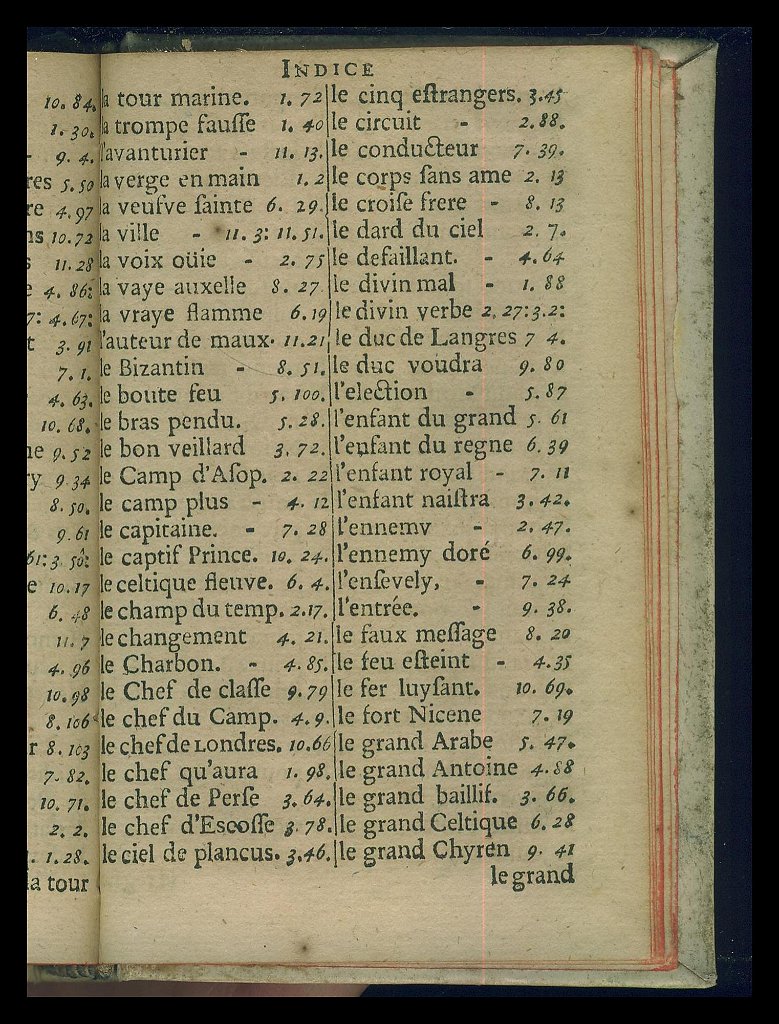 INDICE
10. 84.
1. 30.
- 9. 4.
res 5. 50
re 4. 97
ns 10. 72
s 11. 28
e 4. 86:
7: 4. 67:
t 3. 91
7. 1.
4. 63.
10. 68.
ne 9. 52
ry 9 34
8. 50.
9. 61
61: 3. 50:
e 10. 17
6. 48
11. 7
4. 96
10. 98
8. 106
r 8. 103
7. 82.
10. 71.
2. 2.
. 1. 28.
la tour
la tour marine. 1. 72
la trompe fauſſe 1. 40
l'avanturier - 11. 13.
la verge en main 1. 2
la veufve ſainte 6. 29.
la ville - 11. 3: 11. 51.
la voix oüie - 2. 75
la vaye auxelle 8. 27.
la vraye flamme 6. 19
l'auteur de maux. 11. 21
le Bizantin - 8. 51.
le boute feu 5. 100.
le bras pendu. 5. 28.
le bon veillard 3. 72.
le Camp d'Aſop. 2. 22
le camp plus - 4. 12
le capitaine. - 7. 28
le captif Prince. 10. 24.
le celtique fleuve. 6. 4.
le champ du temp. 2. 17.
le changement 4. 21.
le Charbon. - 4. 85.
le Chef de claſſe 9. 79
le chef du Camp. 4. 9.
le chef de Londres. 10. 66
le chef qu'aura 1. 98.
le chef de Perſe 3. 64.
le chef d'Escoſſe 3. 78.
le ciel de plancus. 3. 46.
le cinq eſtrangers. 3. 45
le circuit - 2. 88.
le conducteur 7. 39.
le corps ſans ame 2. 13
le croiſe frere - 8. 13
le dard du ciel 2. 7.
le defaillant. - 4. 64
le divin mal - 1. 88
le divin verbe 2, 27: 3. 2:
le duc de Langres 7 4.
le duc voudra 9. 80
l'election - 5. 87
l'enfant du grand 5. 61
l'enfant du regne 6. 39
l'enfant royal - 7. 11
l'enfant naiſtra 3. 42.
l'ennemy - 2. 47.
l'ennemy doré 6. 99.
l'enſevely, - 7. 24
l'entrée. - 9. 38.
le faux meſſage 8. 20
le feu eſteint - 4. 35
le fer luyſant. 10. 69.
le fort Nicene 7. 19
le grand Arabe 5. 47.
le grand Antoine 4. 88
le grand baillif. 3. 66.
le grand Celtique 6. 28
le grand Chyren 9. 41
le grand